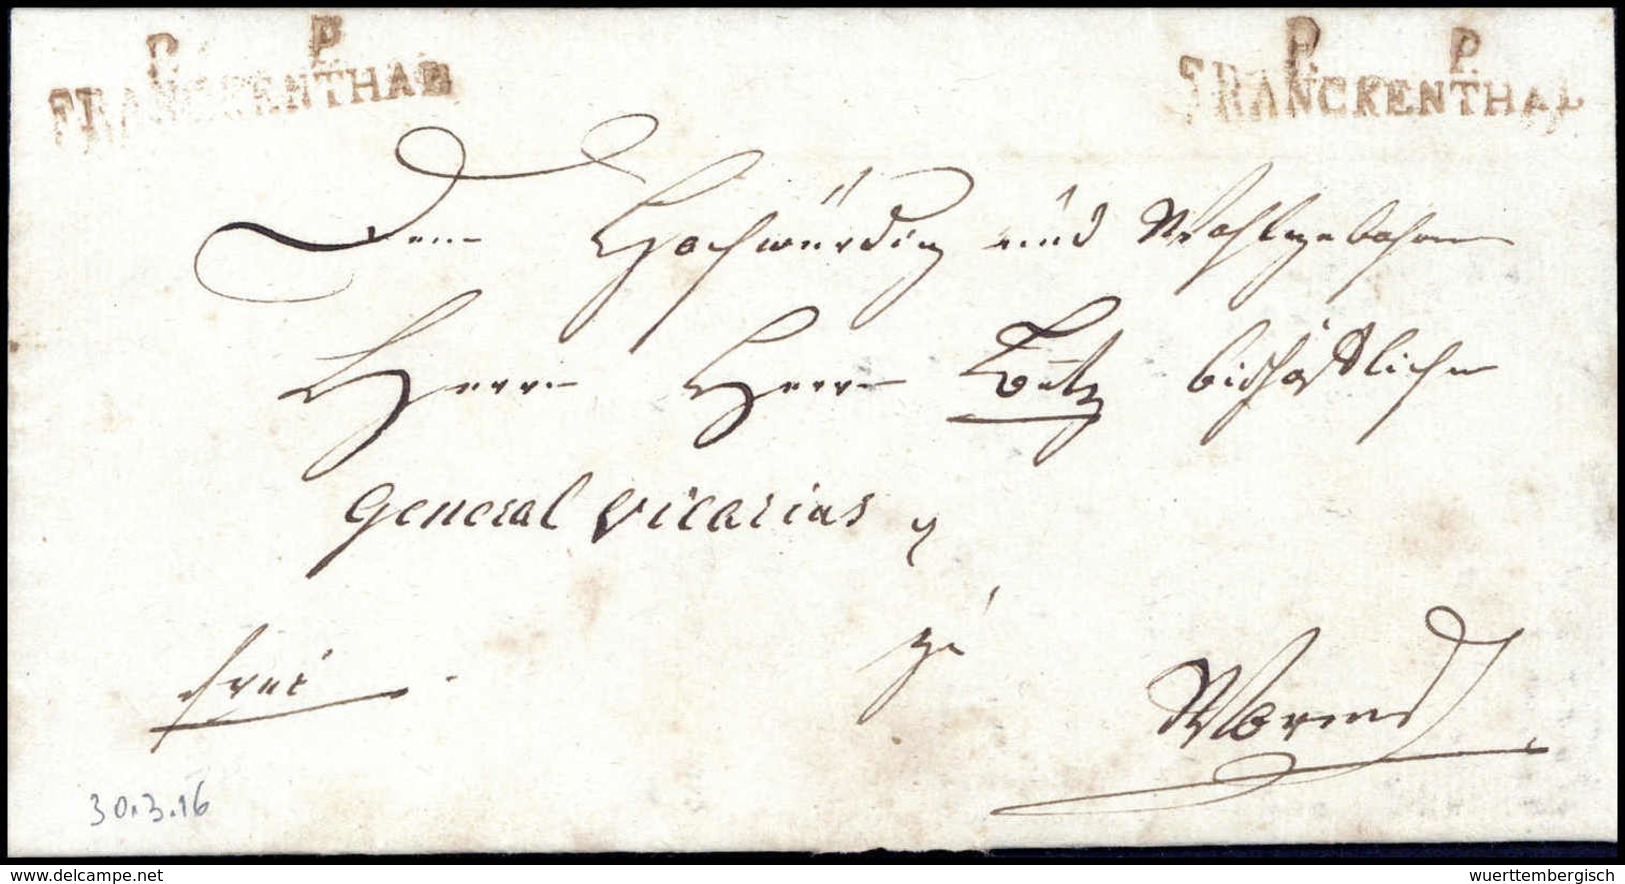 P. P.
FRANCKENTHAL
P. P.
FRANCKENTHAL
Dem Hochwürdig und Wohlgebohrn
Herrn Herrn bischöfflichen
General vicarius
frei
zu
Worms
30.3.16
www.delcampe.net
wuerttembergisch